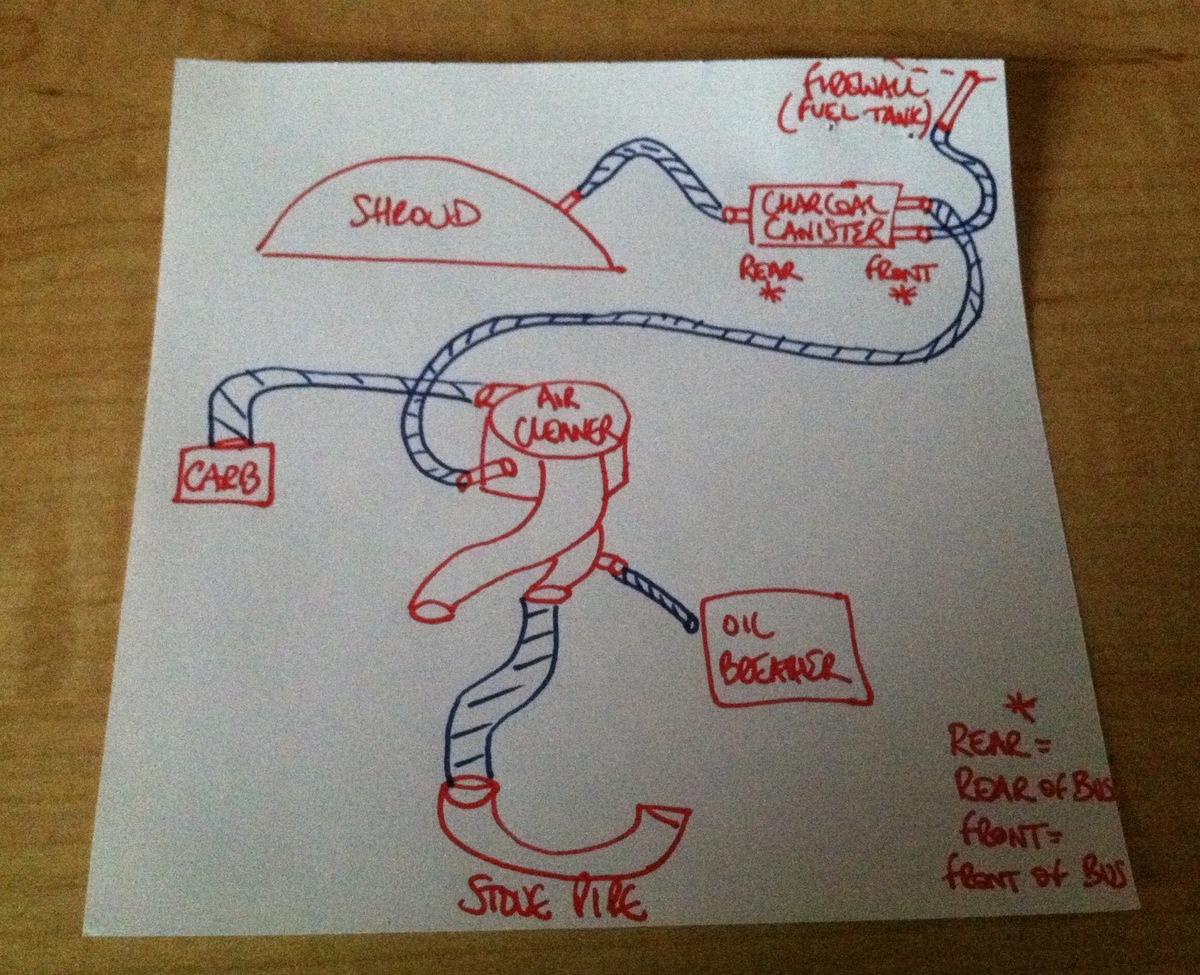 FIREWALL
(FUEL TANK)
SHROUD
CHARCOAL
CANISTER
REAR
*
FRONT
*
AIR
CLEANER
CARB
OIL
BREATHER
*
REAR =
REAR OF BUS
FRONT=
FRONT OF BUS
STOVE PIPE